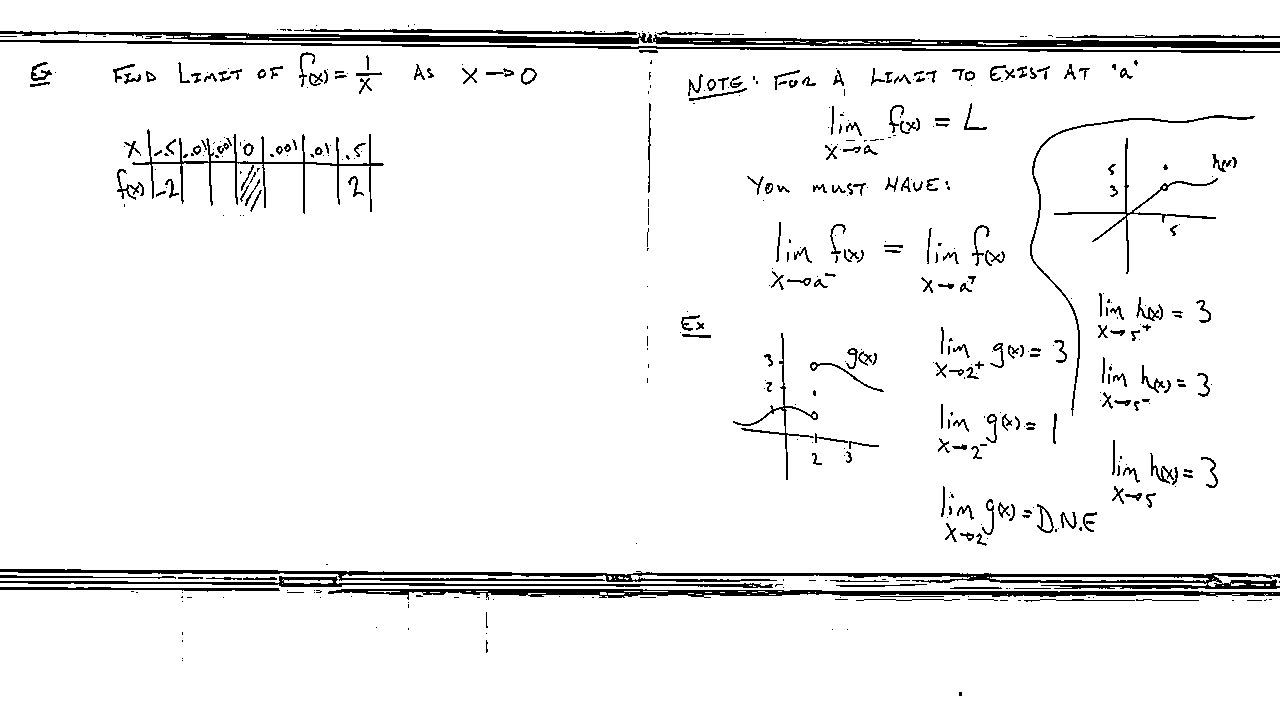 Ex FIND LIMIT OF f(x) = 1/x AS x → 0
x | -.5 | -.01 | -.001 | 0 | .001 | .01 | .5
f(x) | -2 | | | | | | 2
NOTE: FOR A LIMIT TO EXIST AT "a"
lim x→a f(x) = L
YOU MUST HAVE:
lim x→a⁻ f(x) = lim x→a⁺ f(x)
Ex
3
2
1
g(x)
2 3
lim x→2⁺ g(x) = 3
lim x→2⁻ g(x) = 1
lim x→2 g(x) = D.N.E
5
3
h(x)
5
lim x→5⁺ h(x) = 3
lim x→5⁻ h(x) = 3
lim x→5 h(x) = 3